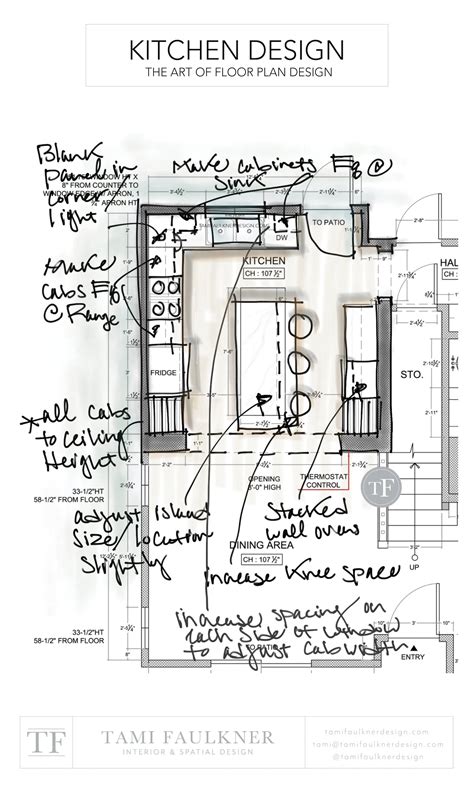 KITCHEN DESIGN
THE ART OF FLOOR PLAN DESIGN
Blank
Panel in
corner
light
8" FROM COUNTER TO
Make cabinets Eq @
Sink
2'-11½"
TAMIFAULKNERDESIGN.COM
DW
TO PATIO
2'-8"
KITCHEN
CH : 107 ½"
HAL
Make
Cabs Eq
@ Range
7'-6"
FRIDGE
STO.
*all cabs
to ceiling
Height
1'-1"
1'-1"
2'-2"
33-1/2"HT
58-1/2" FROM FLOOR
OPENING
8'-0" HIGH
THERMOSTAT
CONTROL
TF
adjust island
Size/location
slightly
Stacked
wall ovens
DINING AREA
CH : 107 ½"
UP
increase knee space
increase spacing on
each side of window
to adjust cab width
33-1/2"HT
58-1/2" FROM FLOOR
10"
3'-2"
3"
ENTRY
TF
TAMI FAULKNER
INTERIOR & SPATIAL DESIGN
tamifaulknerdesign.com
tami@tamifaulknerdesign.com
@tamifaulknerdesign